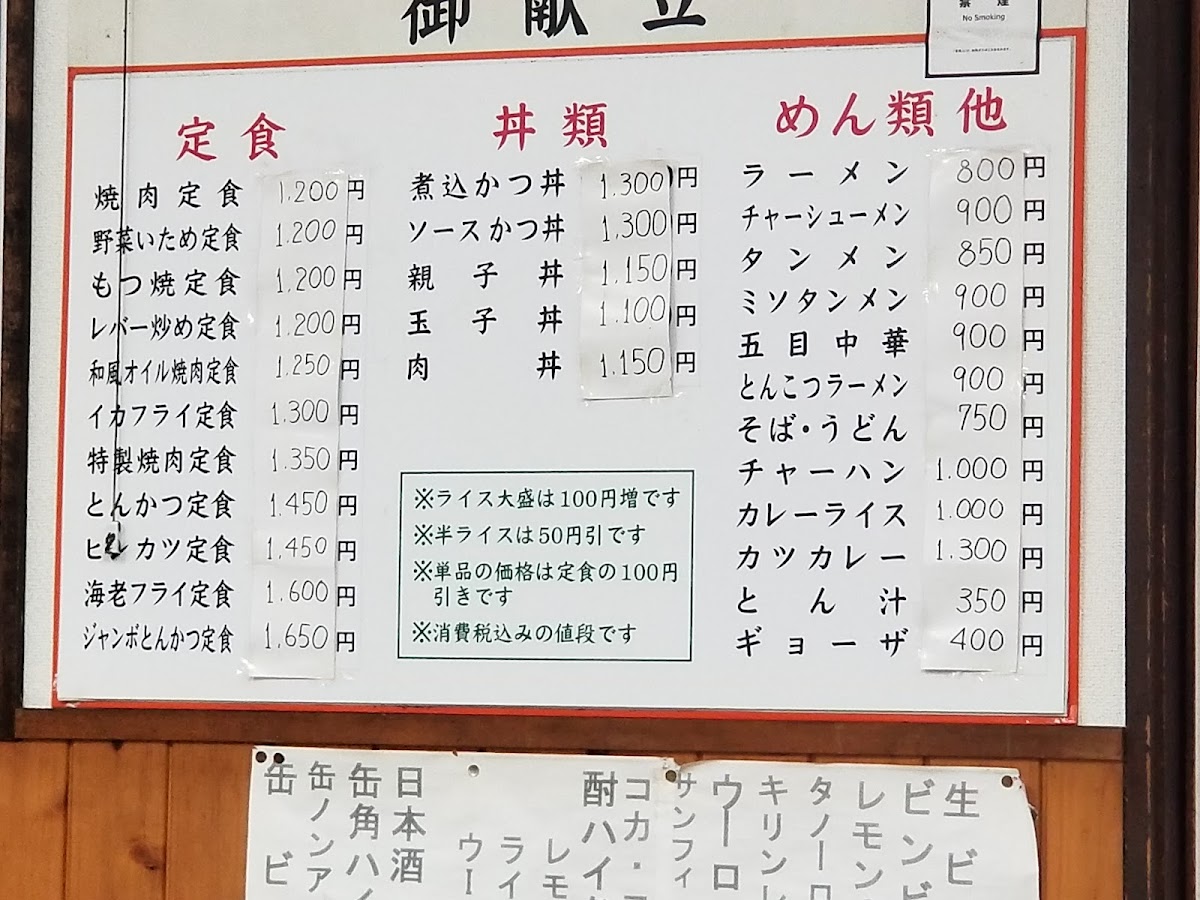 御献立
禁煙
No Smoking
定食
焼肉定食 1,200円
野菜いため定食 1.200円
もつ焼定食 1,200円
レバー炒め定食 1.200円
和風オイル焼肉定食 1.250円
イカフライ定食 1.300円
特製焼肉定食 1.350円
とんかつ定食 1.450円
ヒレカツ定食 1,450円
海老フライ定食 1.600円
ジャンボとんかつ定食 1,650円
丼類
煮込かつ丼 1.300円
ソースかつ丼 1,300円
親子丼 1,150円
玉子丼 1.100円
肉丼 1.150円
※ライス大盛は100円増です
※半ライスは50円引です
※単品の価格は定食の100円
引きです
※消費税込みの値段です
めん類他
ラーメン 800円
チャーシューメン 900円
タンメン 850円
ミソタンメン 900円
五目中華 900円
とんこつラーメン 900円
そば・うどん 750円
チャーハン 1.000円
カレーライス 1.000円
カツカレー 1.300円
とん汁 350円
ギョーザ 400円
生ビ
ビンビ
レモン
タノーロ
キリンレ
ウーロ
サンフィ
コカ・コ
酎ハイ
レモ
ライ
ウー
日本酒
缶角ハイ
缶ノンア
缶ビ